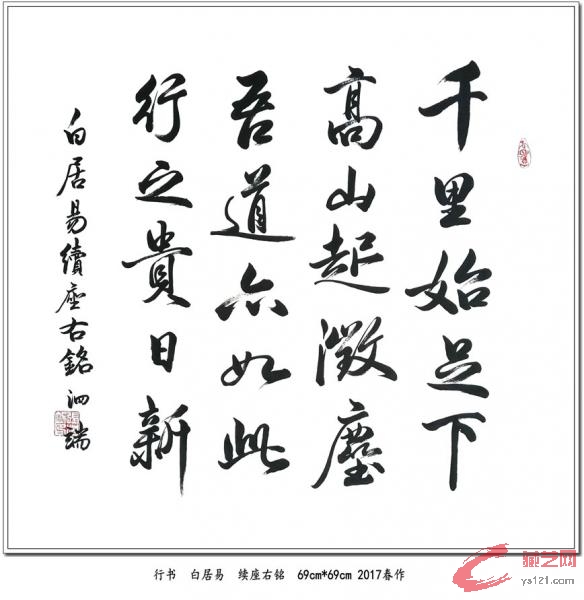 千里始足下
高山起微塵
吾道亦如此
行之貴日新
白居易續座右銘 泗端
行书 白居易 续座右铭 69cm*69cm 2017春作
藏艺网
ys121.com